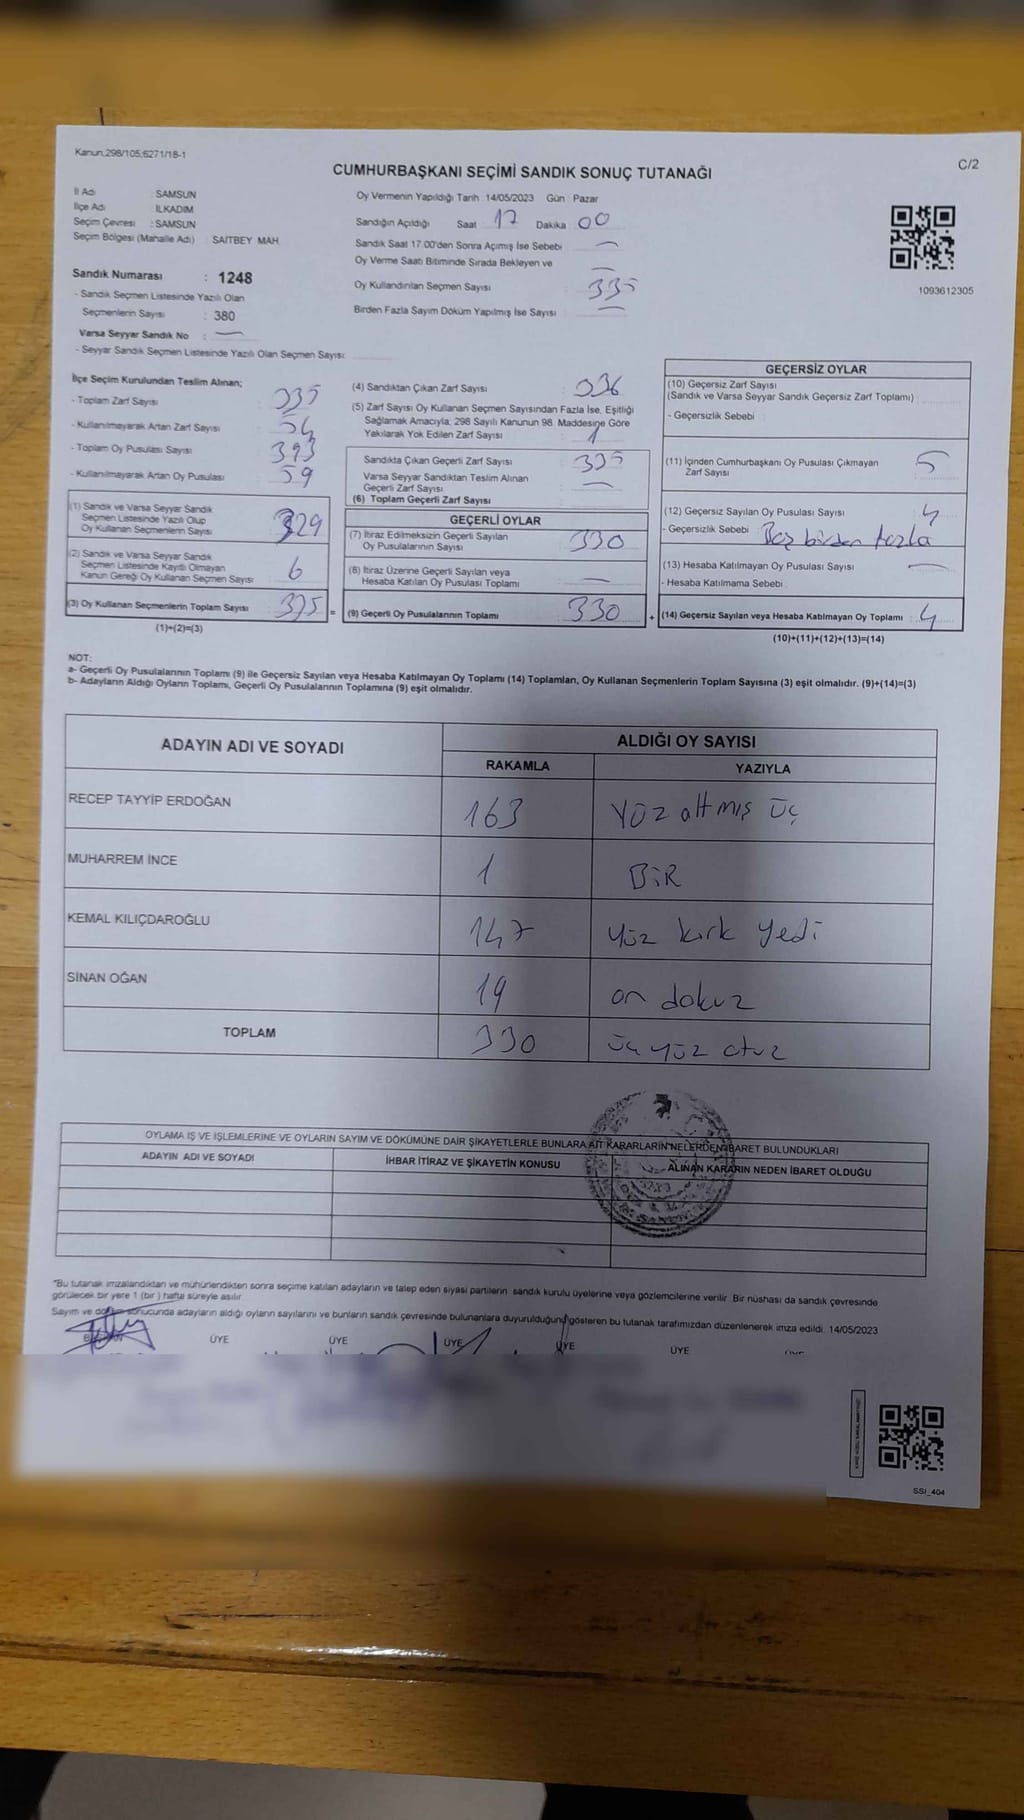 Kanun,298/105;6271/18-1
C/2
CUMHURBAŞKANI SEÇİMİ SANDIK SONUÇ TUTANAĞI
İl Adı : SAMSUN
İlçe Adı : İLKADIM
Seçim Çevresi : SAMSUN
Seçim Bölgesi (Mahalle Adı) : SAİTBEY MAH.
Sandık Numarası : 1248
- Sandık Seçmen Listesinde Yazılı Olan
Seçmenlerin Sayısı : 380
Varsa Seyyar Sandık No : —
- Seyyar Sandık Seçmen Listesinde Yazılı Olan Seçmen Sayısı:
Oy Vermenin Yapıldığı Tarih :14/05/2023 Gün : Pazar
Sandığın Açıldığı Saat 17 Dakika 00
Sandık Saat 17.00'den Sonra Açımış İse Sebebi : —
Oy Verme Saati Bitiminde Sırada Bekleyen ve : —
Oy Kullandırılan Seçmen Sayısı 335
Birden Fazla Sayım Döküm Yapılmış İse Sayısı : —
1093612305
İlçe Seçim Kurulundan Teslim Alınan;
- Toplam Zarf Sayısı
- Kullanılmayarak Artan Zarf Sayısı : 54
- Toplam Oy Pusulası Sayısı : 393
- Kullanılmayarak Artan Oy Pusulası : 59
(1) Sandık ve Varsa Seyyar Sandık
Seçmen Listesinde Yazılı Olup
Oy Kullanan Seçmenlerin Sayısı : 329
(2) Sandık ve Varsa Seyyar Sandık
Seçmen Listesinde Kayıtlı Olmayan
Kanun Gereği Oy Kullanan Seçmen Sayısı : 6
(3) Oy Kullanan Seçmenlerin Toplam Sayısı : 335
(1)+(2)=(3)
(4) Sandıktan Çıkan Zarf Sayısı : 336
(5) Zarf Sayısı Oy Kullanan Seçmen Sayısından Fazla İse, Eşitliği
Sağlamak Amacıyla, 298 Sayılı Kanunun 98. Maddesine Göre
Yakılarak Yok Edilen Zarf Sayısı : 1
Sandıkta Çıkan Geçerli Zarf Sayısı : 335
Varsa Seyyar Sandıktan Teslim Alınan
Geçerli Zarf Sayısı : —
(6) Toplam Geçerli Zarf Sayısı
GEÇERLİ OYLAR
(7) İtiraz Edilmeksizin Geçerli Sayılan
Oy Pusulalarının Sayısı : 330
(8) İtiraz Üzerine Geçerli Sayılan veya
Hesaba Katılan Oy Pusulası Toplamı : —
= (9) Geçerli Oy Pusulalarının Toplamı : 330
GEÇERSİZ OYLAR
(10) Geçersiz Zarf Sayısı
(Sandık ve Varsa Seyyar Sandık Geçersiz Zarf Toplamı) :
- Geçersizlik Sebebi :
(11) İçinden Cumhurbaşkanı Oy Pusulası Çıkmayan
Zarf Sayısı : 5
(12) Geçersiz Sayılan Oy Pusulası Sayısı : 4
- Geçersizlik Sebebi : birden fazla
(13) Hesaba Katılmayan Oy Pusulası Sayısı : —
- Hesaba Katılmama Sebebi :
+ (14) Geçersiz Sayılan veya Hesaba Katılmayan Oy Toplamı : 4
(10)+(11)+(12)+(13)=(14)
NOT:
a- Geçerli Oy Pusulalarının Toplamı (9) ile Geçersiz Sayılan veya Hesaba Katılmayan Oy Toplamı (14) Toplamları, Oy Kullanan Seçmenlerin Toplam Sayısına (3) eşit olmalıdır. (9)+(14)=(3)
b- Adayların Aldığı Oyların Toplamı, Geçerli Oy Pusulalarının Toplamına (9) eşit olmalıdır.
ADAYIN ADI VE SOYADI
ALDIĞI OY SAYISI
RAKAMLA YAZIYLA
RECEP TAYYİP ERDOĞAN 163 Yüz altmış üç
MUHARREM İNCE 1 BİR
KEMAL KILIÇDAROĞLU 147 Yüz kırk yedi
SİNAN OĞAN 19 on dokuz
TOPLAM 330 üç yüz otuz
OYLAMA İŞ VE İŞLEMLERİNE VE OYLARIN SAYIM VE DÖKÜMÜNE DAİR ŞİKAYETLERLE BUNLARA AİT KARARLARIN NELERDEN İBARET BULUNDUKLARI
ADAYIN ADI VE SOYADI İHBAR İTİRAZ VE ŞİKAYETİN KONUSU ALINAN KARARIN NEDEN İBARET OLDUĞU
"Bu tutanak imzalandıktan ve mühürlendikten sonra seçime katılan adayların ve talep eden siyasi partilerin sandık kurulu üyelerine veya gözlemcilerine verilir. Bir nüshası da sandık çevresinde
görülecek bir yere 1 (bir ) hafta süreyle asılır.
Sayım ve döküm sonucunda adayların aldığı oyların sayılarını ve bunların sandık çevresinde bulunanlara duyurulduğunu gösteren bu tutanak tarafımızdan düzenlenerek imza edildi. 14/05/2023
ÜYE ÜYE ÜYE ÜYE ÜYE
SSI_404